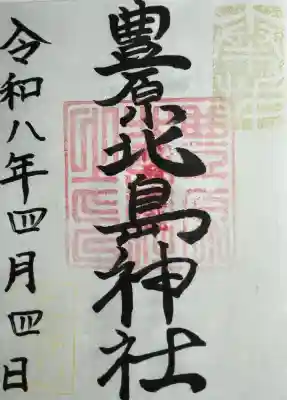 豊原北島神社
令和八年四月四日